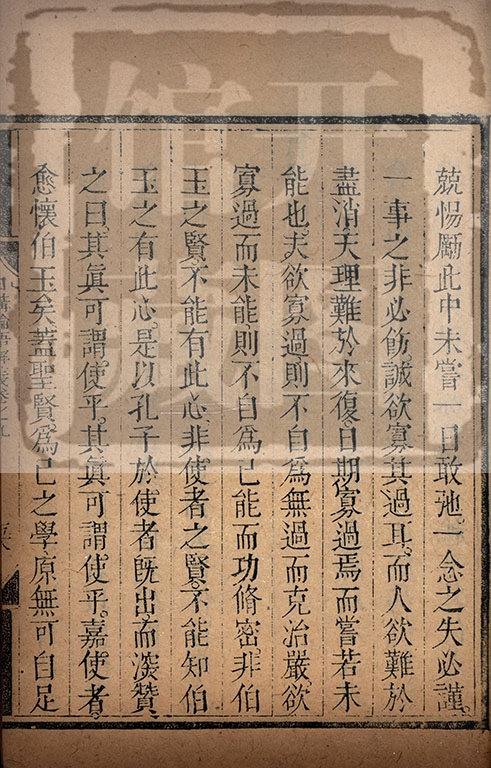 兢惕勵此中未嘗一日敢弛一念之失必謹。
一事之非必飭。誠欲寡其過耳。而人欲難於
盡消。天理難於來復。日期寡過焉而嘗若未
能也。夫欲寡過。則不自爲無過而克治嚴。欲
寡過而未能。則不自爲已能而功脩密。非伯
玉之賢。不能有此心。非使者之賢。不能知伯
玉之有此心。是以孔子於使者旣出而深贊
之曰。其眞可謂。使乎。其眞可謂。使乎。嘉使者。
愈懷伯玉矣。蓋聖賢。爲己之學。原無可自足